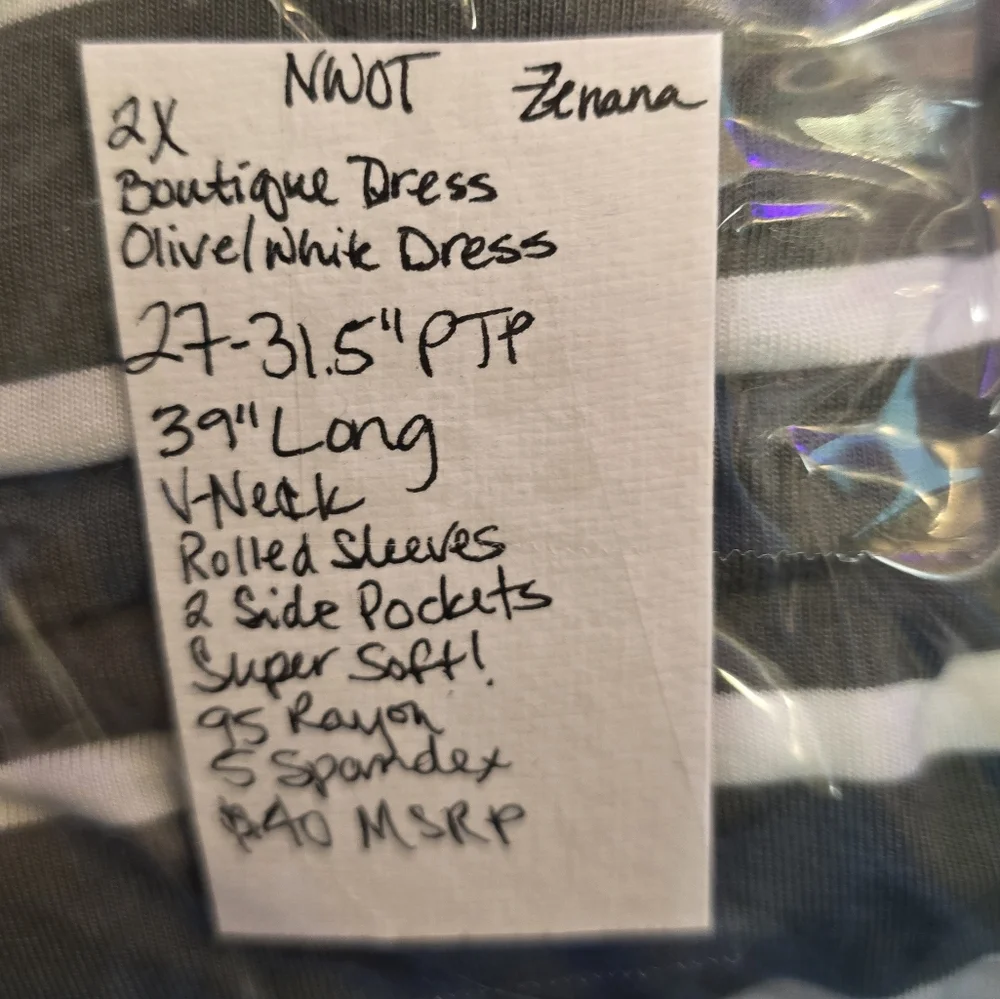 NWOT Zenana
2X
Boutique Dress
Olive/White Dress
27-31.5" PTP
39" Long
V-Neck
Rolled Sleeves
2 Side Pockets
Super Soft!
95 Rayon
5 Spandex
$40 MSRP